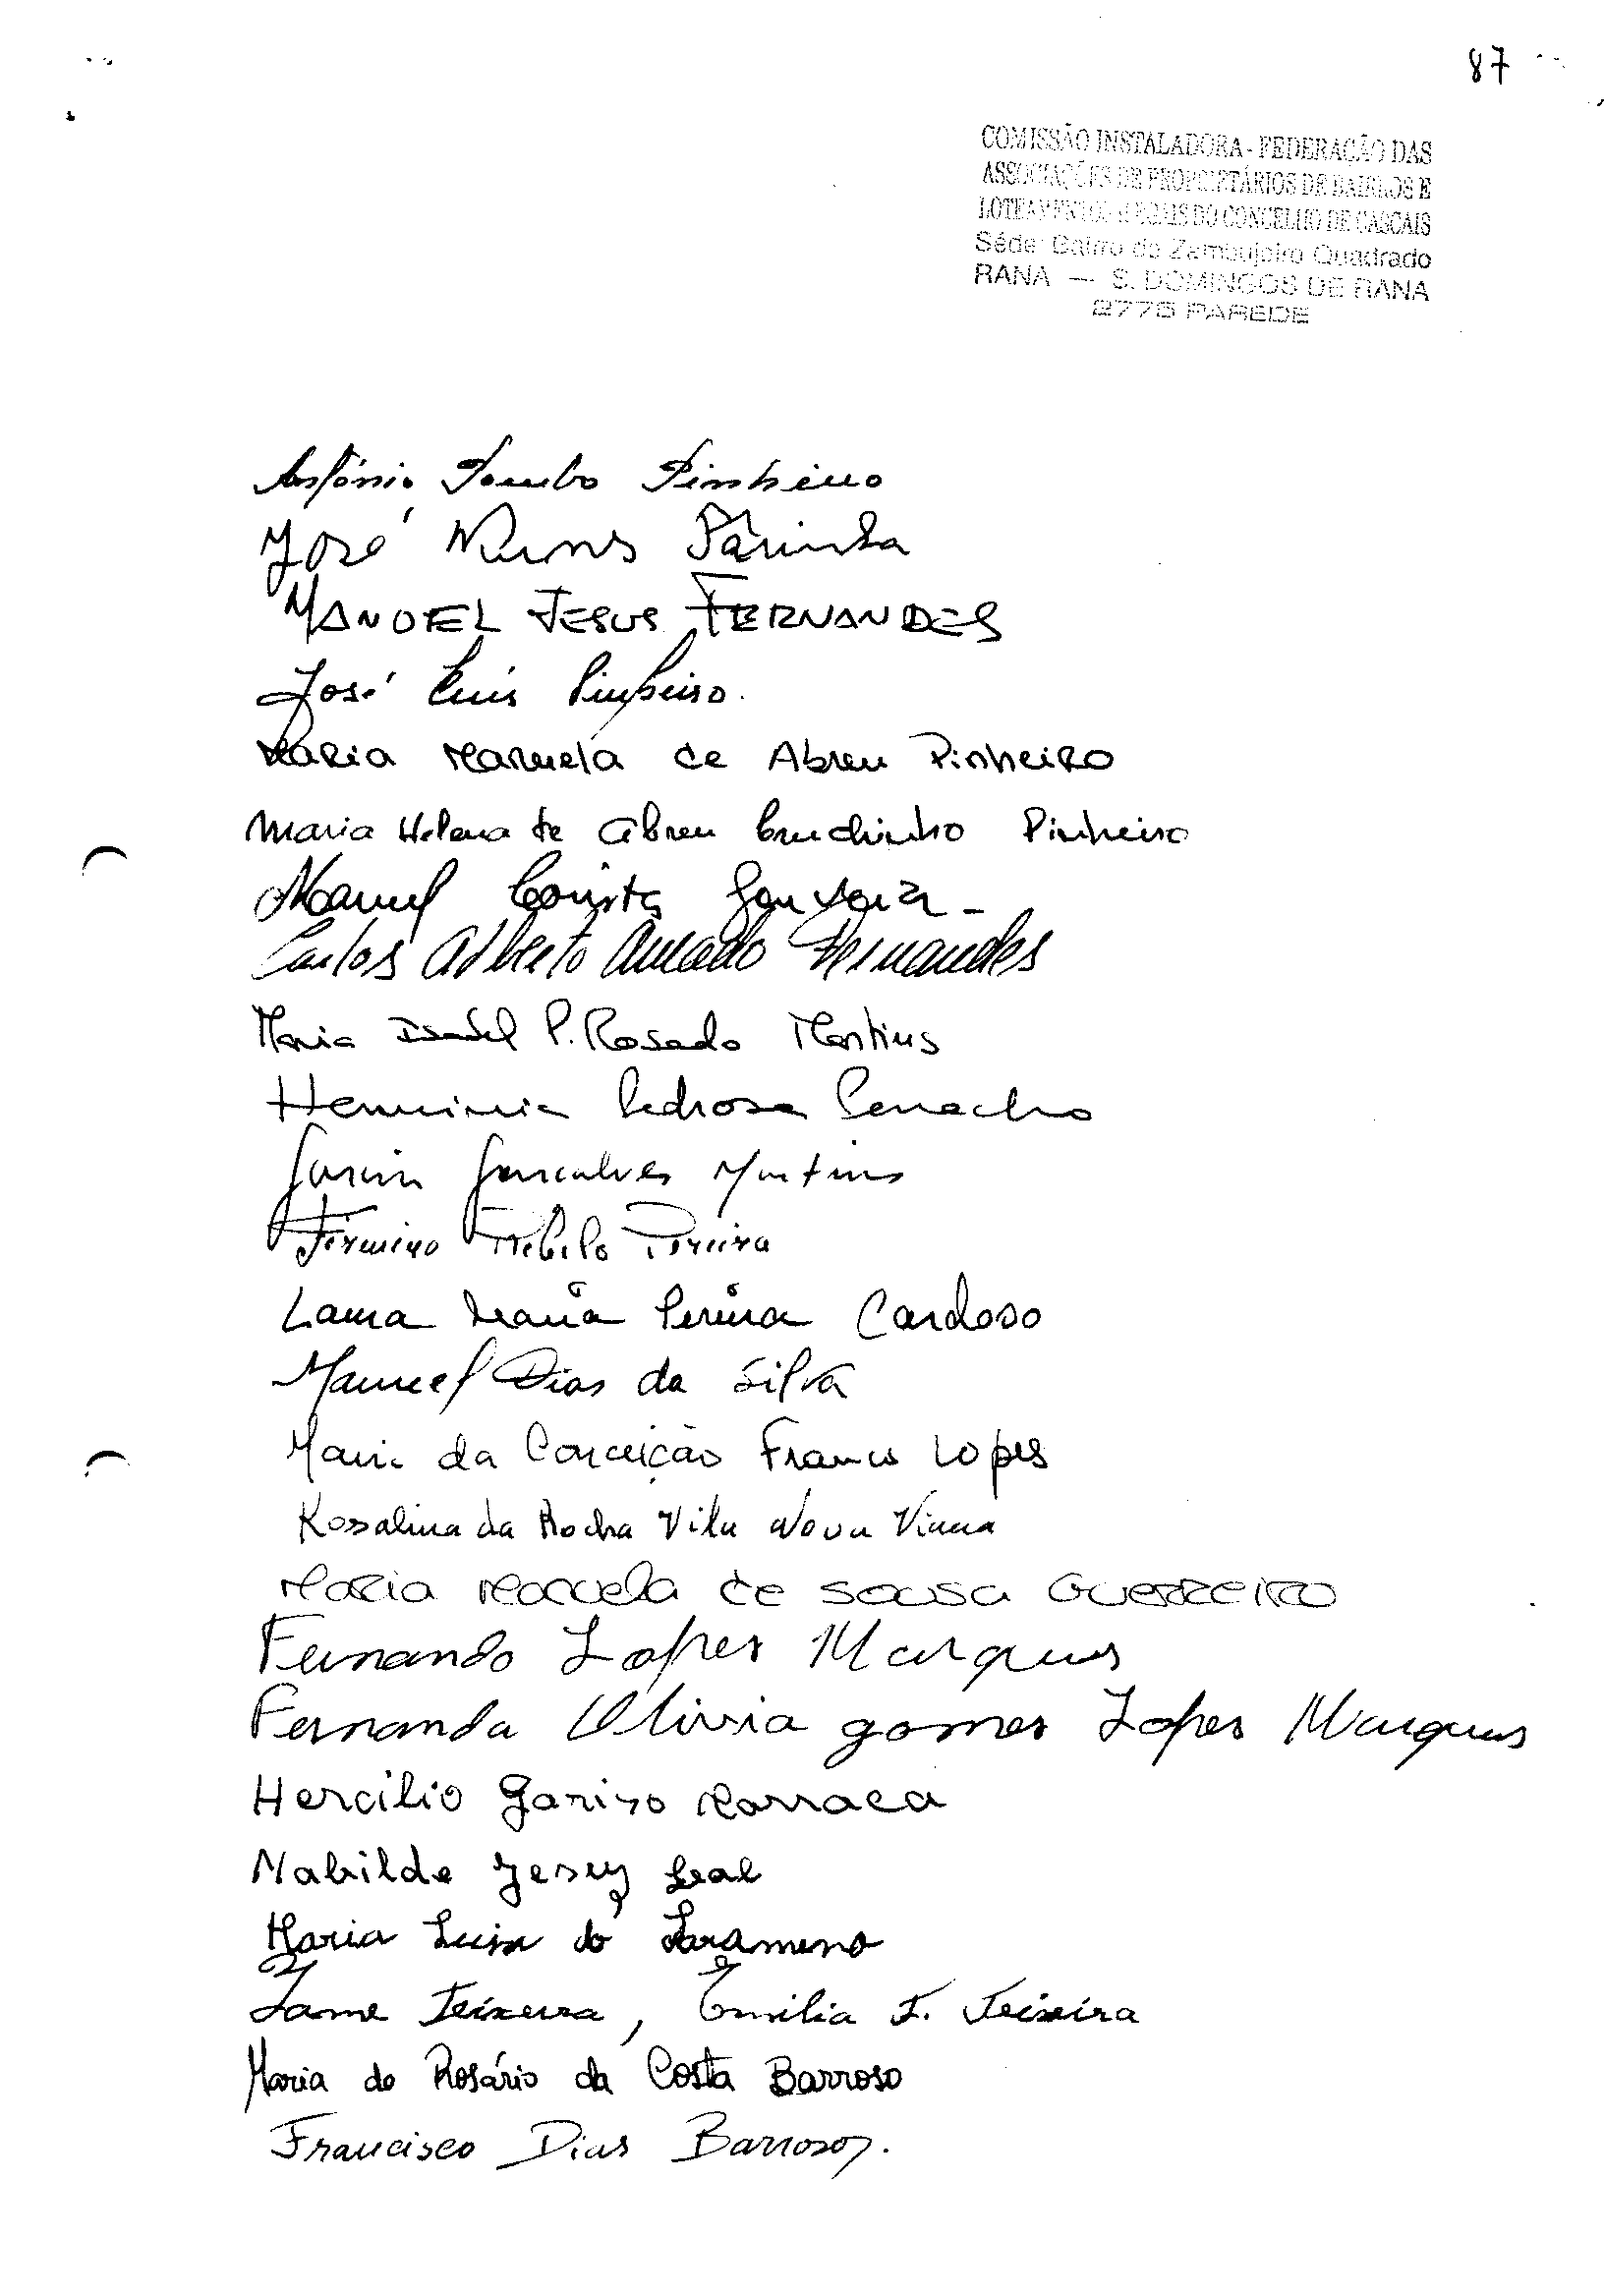 87
COMISSÃO INSTALADORA - FEDERAÇÃO DAS
ASSOCIAÇÕES DE PROPRIETÁRIOS DE BAIRROS E
LOTEAMENTOS ILEGAIS DO CONCELHO DE CASCAIS
Séde: Bairro do Zambujeiro Quadrado
RANA — S. DOMINGOS DE RANA
2775 PAREDE
António Pinheiro
José Nunes Farinha
MANUEL JESUS FERNANDES
José Luís Pinheiro.
Maria Manuela de Abreu Pinheiro
Maria Helena de Abreu Pinheiro
Manuel
Carlos Alberto Amado Fernandes
Maria Isabel P. Rosado Martins
Herminia Pedrosa
Gonçalves Martins
Firmino Pereira
Laura Maria Pereira Cardoso
Manuel Dias da Silva
Maria da Conceição Franco Lopes
Rosalina da Rocha Vila Nova Viana
Maria Manuela de Sousa Guerreiro
Fernando Lopes Marques
Fernanda Olivia gomes Lopes Marques
Hercílio
Jesus Leal
Maria Luisa
Jaime Teixeira, Emilia F. Teixeira
Maria do Rosário da Costa Barroso
Francisco Dias Barroso.